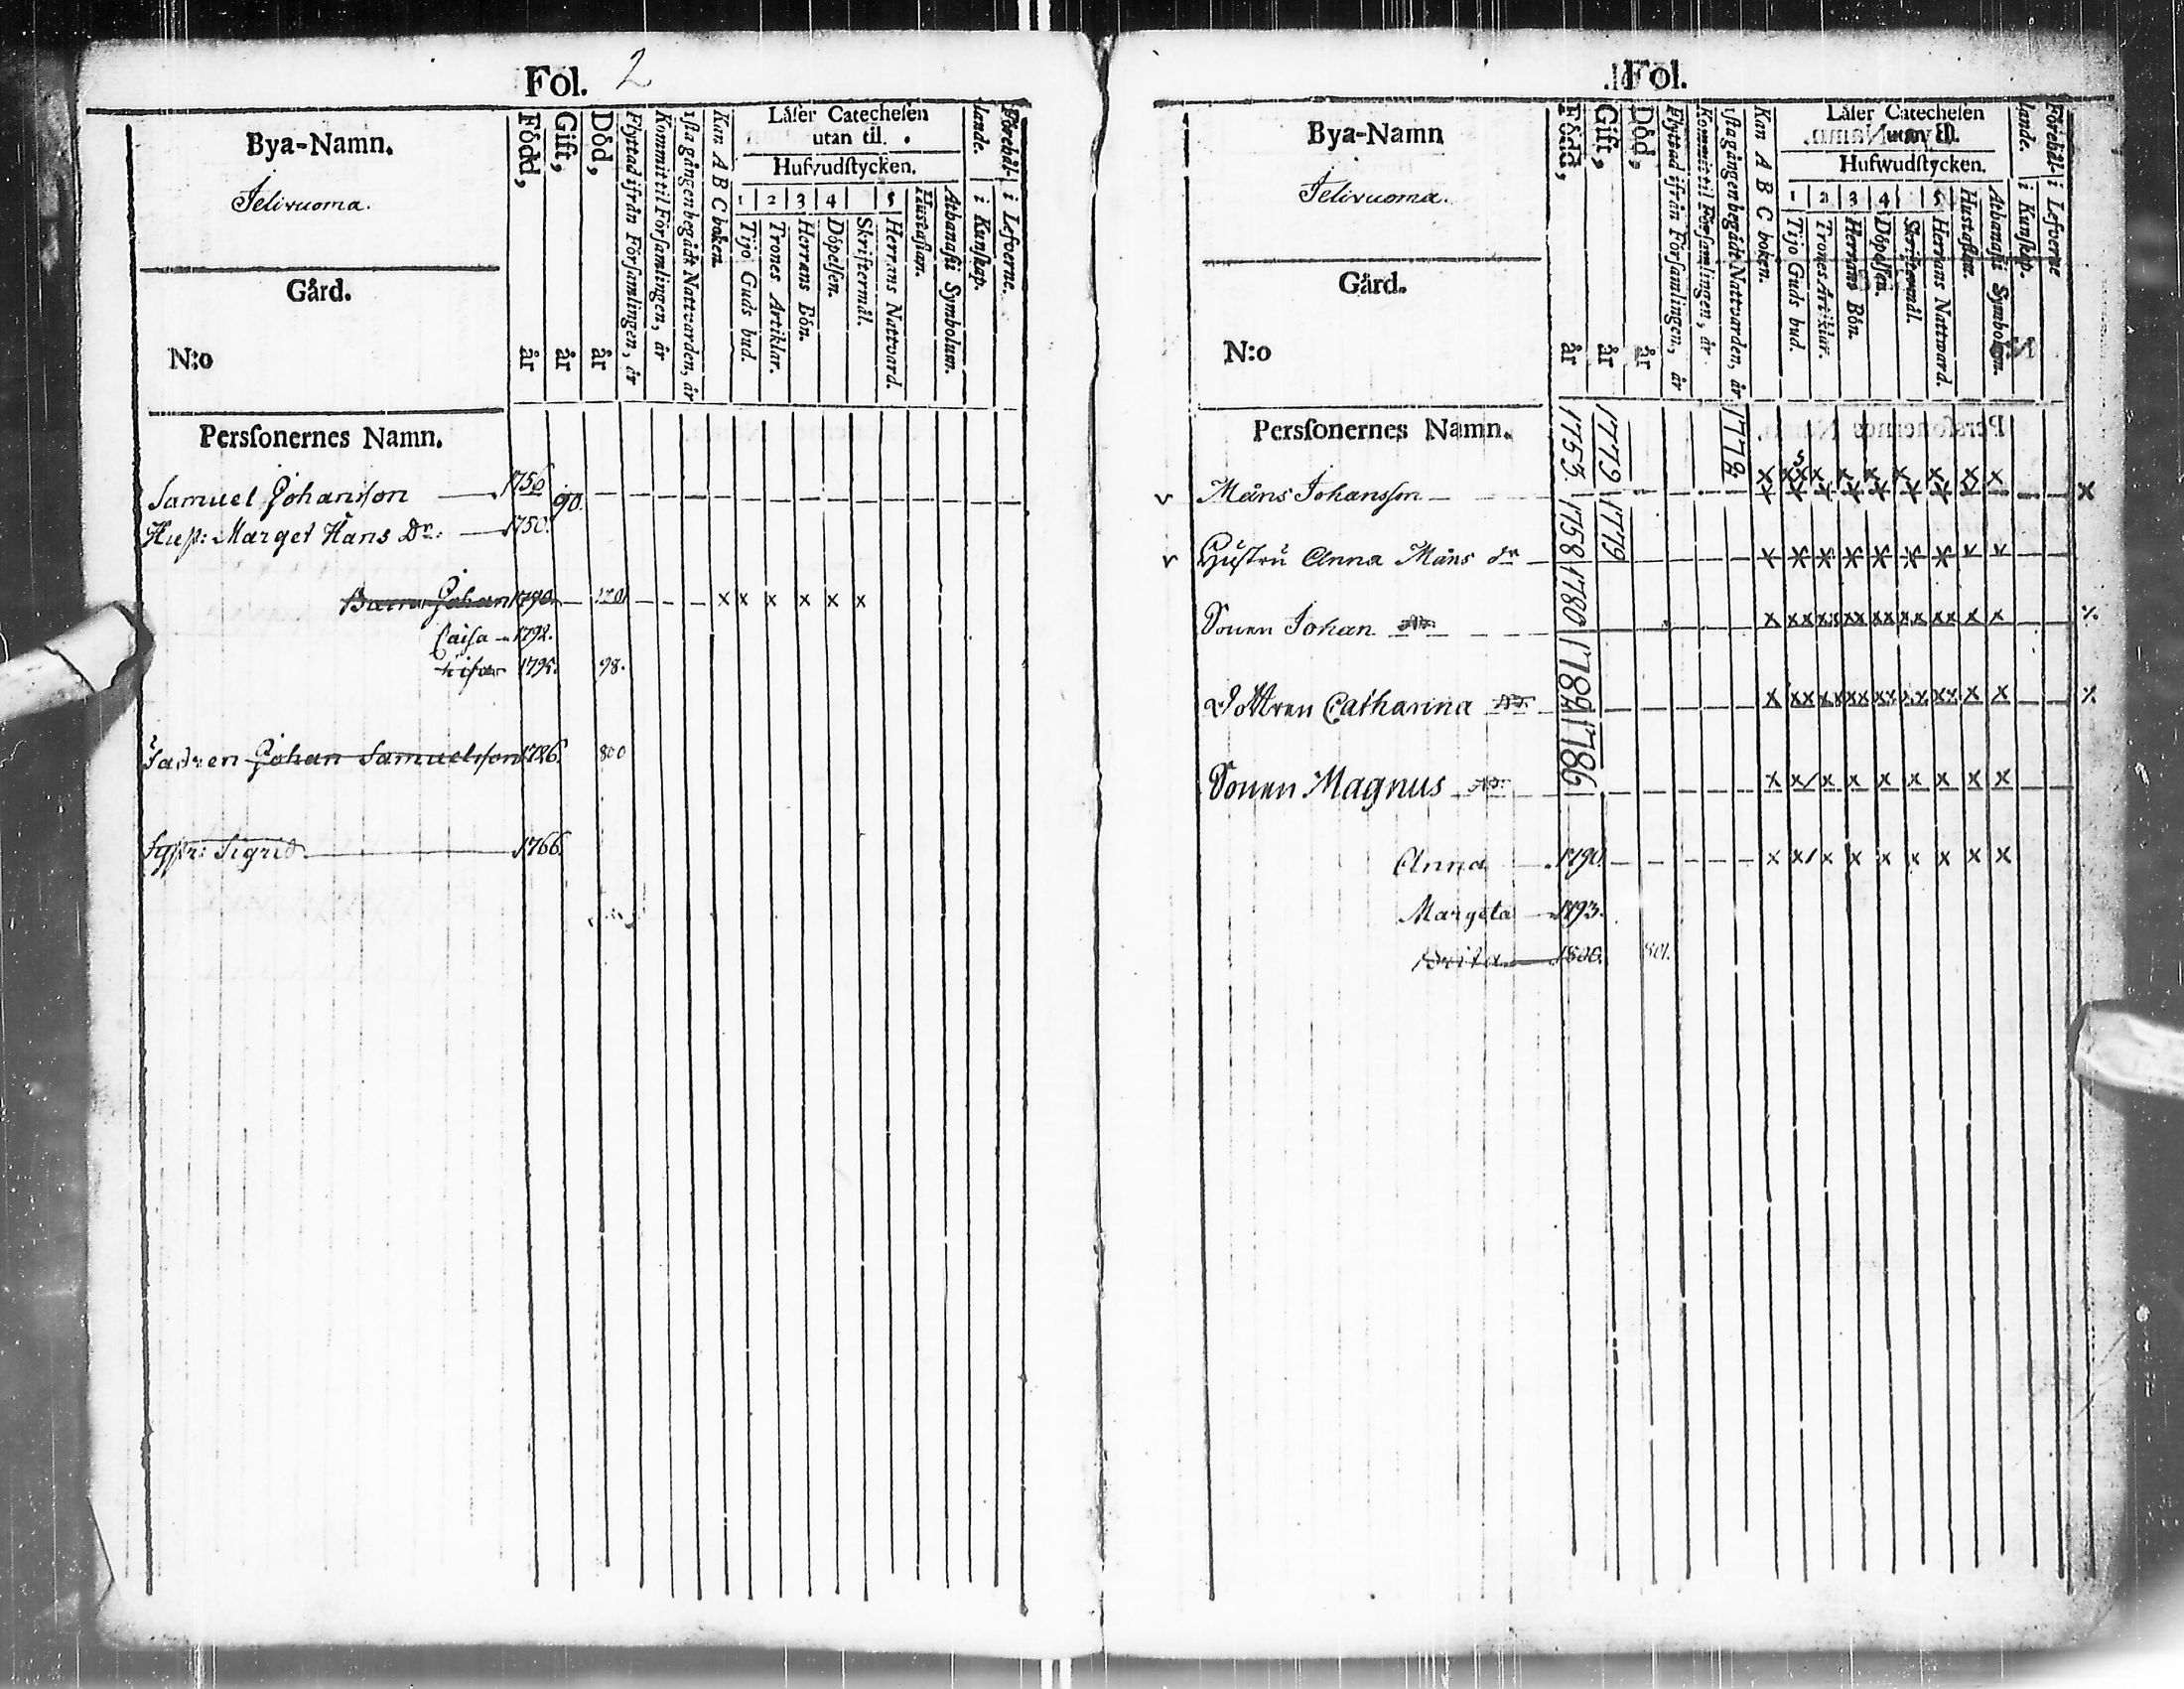 Fol. 2
Bya-Namn.
Jelivuoma.
Gård.
N:o
Perſonernes Namn.
Född, år
Gift, år
Död, år
Flyttad ifrån Förſamlingen, år
Kommit til Förſamlingen, år
1ſta gången begådt Nattvarden, år
Kan A B C boken.
Läſer Catecheſen
utan til.
Hufvudſtycken.
1 2 3 4 5
Tijo Guds bud.
Trones Artiklar.
Herrans Bön.
Döpelſen.
Skriftermål.
Herrans Nattvard.
Hustaflan.
Athanaſii Symbolum.
Förehål- lande.
i Kunſkap.
i Lefverne.
Samuel Johansson 1756 90.
Huſt: Marget Hans Dr: 1750.
Barn Johan 1790 x x x x x x
Caisa 1792.
Lisa 1795. 98.
Fadren Johan Samuelsson 1726. 800
Syſtr: Sigrid 1766.
Fol.
Bya-Namn
Jelivuoma.
Gård.
N:o
Perſonernes Namn.
Född, år
Gift, år
Död, år
Flyttad ifrån Förſamlingen, år
Kommit til Förſamlingen, år
1ſta gången begådt Nattvarden, år
Kan A B C boken.
Läſer Catecheſen
utan til.
Hufwudſtycken.
1 2 3 4 5
Tijo Guds bud.
Trones Artiklar.
Herrans Bön.
Döpelſen.
Skriftermål.
Herrans Nattward.
Hustaflan.
Athanaſii Symbolum.
Förehål- lande.
i Kunſkap.
i Lefverne
v Måns Johansson 1753. 1779 1778 x x x x x x x x x x
v Huſtru Anna Måns dr 1758 1779 x x x x x x x x x
Sonen Johan 1780 x xx xx xx xx xx xx x x
Dottren Catharina 1782 x xx xx xx xx xx xx x x
Sonen Magnus 1786 x x/ x x x x x x x
Anna 1790. x x/ x x x x x x x
Margeta 1793.
Brita 1800. 801.